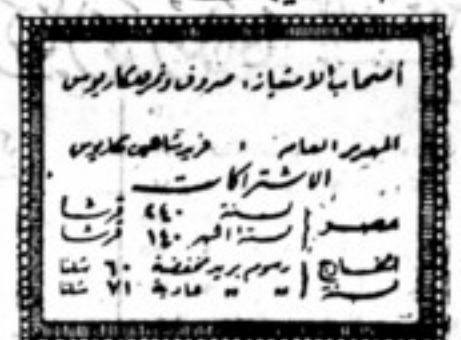 أصحاب الامتياز: صروف ونمر ومكاريوس
المدير العام : فريد شاهين مكاريوس
الاشتراكات
مصر { لسنة ٢٤٠ قرشا
لستة أشهر ١٤٠ قرشا
الخارج { رسوم بريد مخفضة ٦٠ شلنا
لسنة { " " عادية ٧١ شلنا